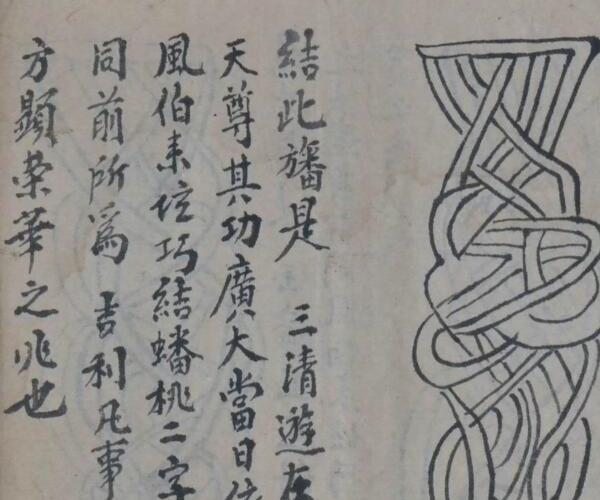 結此旛是 三清遊
天尊其功廣大當日
風伯未位巧結蟠桃二字
同前所爲 吉利凡事
方顯荣華之兆也